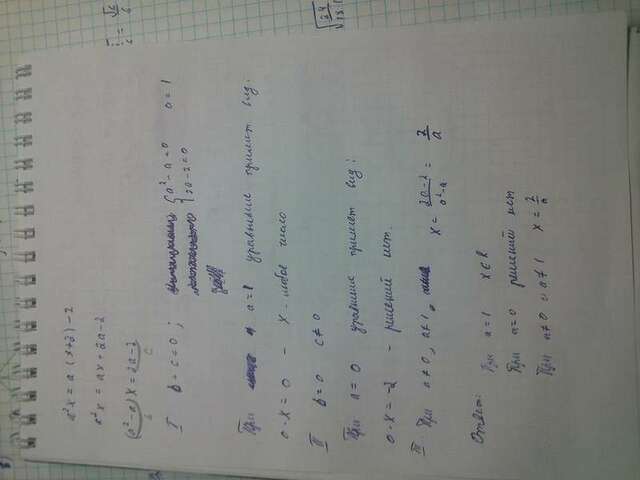 a²x = a (x+2) - 2
a²x = ax + 2a - 2
(a² - a) x = 2a - 2
b c
I b = c = 0 ; { a² - a = 0 a = 1
2a - 2 = 0
При a = 1 уравнение примет вид:
0 · x = 0 - x - любое число
II b = 0 c ≠ 0
При a = 0 уравнение примет вид:
0 · x = -2 - решений нет.
III При a ≠ 0, a ≠ 1, x = (2a-2)/(a²-a) = 2/a
Ответ: При a = 1 x ∈ R
При a = 0 решений нет
При a ≠ 0 a ≠ 1 x = 2/a